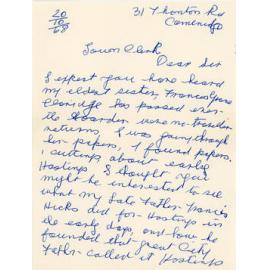 20
10
68
31 Thornton Rd
Cambridge
Town Clerk
Dear Sir
I expect you have heard
my eldest sister, Frances
has passed over
the
returns, I was going through
her papers, I found papers,
cuttings about early
Hastings, I thought you
might be interested to see
what my Late Father Francis
Hicks did for Hastings in
the early days, and how he
founded that great City
Father called it Hastings